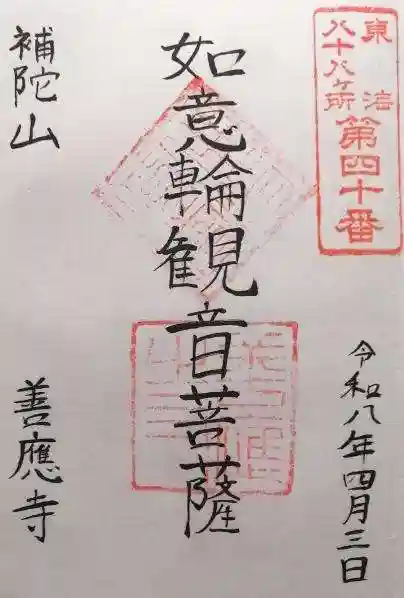 東海
八十八ヶ所
第四十番
令和八年四月三日
如意輪観音菩薩
補陀山
善應寺